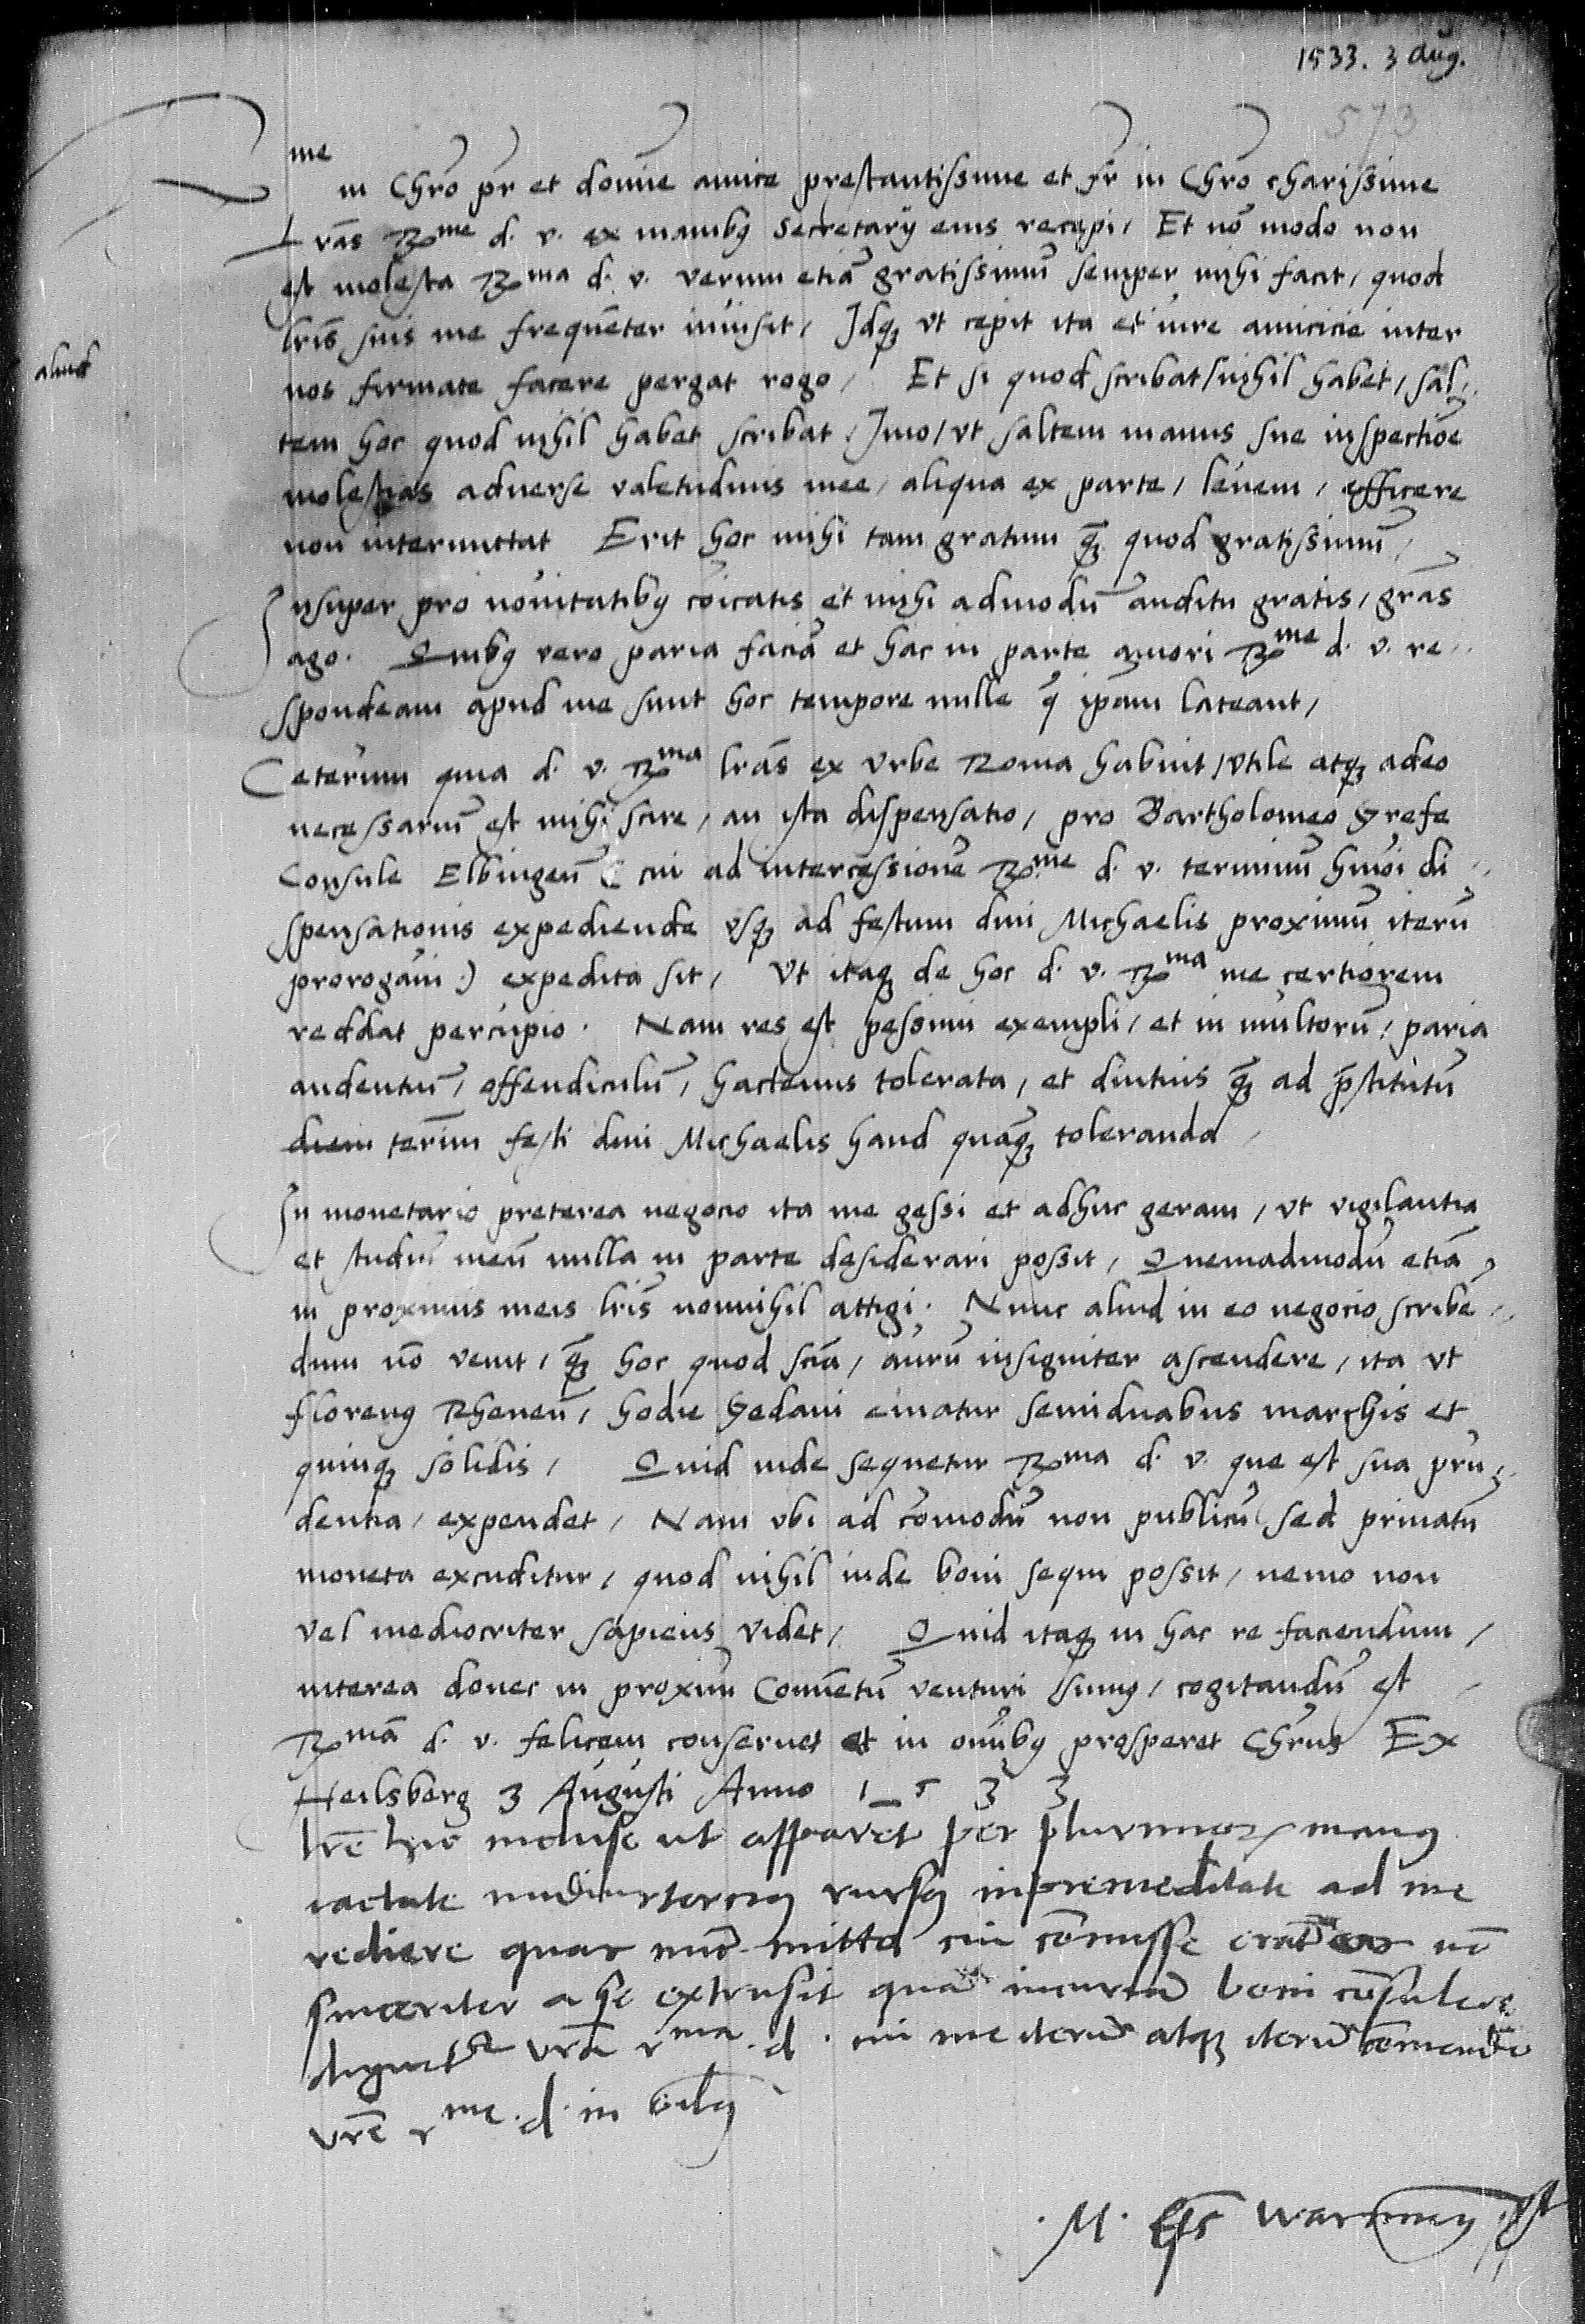 1533. 3 Aug.
573
Rme in Chro pr et domine amice prestantissime et fr in Chro charissime
Lras Rme d. v. ex manibus Secretarij eius recepi, Et no modo non
est molesta Rma d. v. verum etia gratissimu semper mihi facit, quod
lris suis me frequenter inuisit, Idq vt cepit ita et iure amicicie inter
aliud
nos firmate facere pergat rogo, Et si quod scribat / nihil habet, sal
tem hoc quod nihil habet scribat, Imo, vt saltem manus sue inspectioe
molestias aduerse valetudinis mee, aliqua ex parte, leuem, efficere
non intermittat Erit hoc mihi tam gratum q quod gratissimu,
Insuper pro nouitatibus coicatis et mihi admodu auditu gratis, gras
ago. Quibus vero paria facia et hac in parte amori Rme d. v. re
spondeam apud me sunt hoc tempore nulle q ipam lateant,
Ceterum quia d. v. Rma lras ex vrbe Roma habuit, vtile atq adeo
necessariu est mihi scire, an ista dispensatio, pro Bartholomeo Grefe
Consule Elbingen ( cui ad intercessione Rme d. v. terminu huiusmoi di
spensationis expediende vsq ad festum diui Michaelis proximu iteru
prorogaui ) expedita sit, Vt itaq de hoc d. v. Rma me certiorem
reddat percupio. Nam res est pessimi exempli, et in multoru, paria
audentiu, offendiculu, hactenus tolerata, et diutius q ad prestitutu
diem termin festi diui Michaelis haud quaq toleranda,
In monetario preterea negocio ita me gessi et adhuc geram, vt vigilantia
et studiu meu nulla in parte desiderari possit, Quemadmodu etia
in proximis meis lris nonnihil attigi. Nunc aliud in eo negocio scribe
dum no venit, q hoc quod scia, auru insigniter ascendere, ita vt
florenus Rhenen, hodie Gedani ematur semiduabus marchis et
quinq solidis, Quid inde sequetur Rma d. v. que est sua pru
dentia, expendet, Nam vbi ad comodu non publicu sed priuatu
moneta excuditur, quod nihil inde boni sequi possit, nemo non
vel mediocriter sapiens videt, Quid itaq in hac re faciendum,
interea donec in proximu Conuentu venturi sumus, cogitandu est
Rma d. v. felicem conseruet et in omibus prosperet Chrus Ex
Heilsberg 3 Augusti Anno 1533
lre hic incluse ut apparet per plurimor manus
iactate nudiustercius rursus inpremeditate ad me
rediere quas nuc mitto cui comisse erat eas no
sinceriter a se extrusit qua incuria boni consulere
dignetur vra rma. d. cui me iteru atq iteru comendo
vre rme. d. in oibus
M. Eps Warmien sst